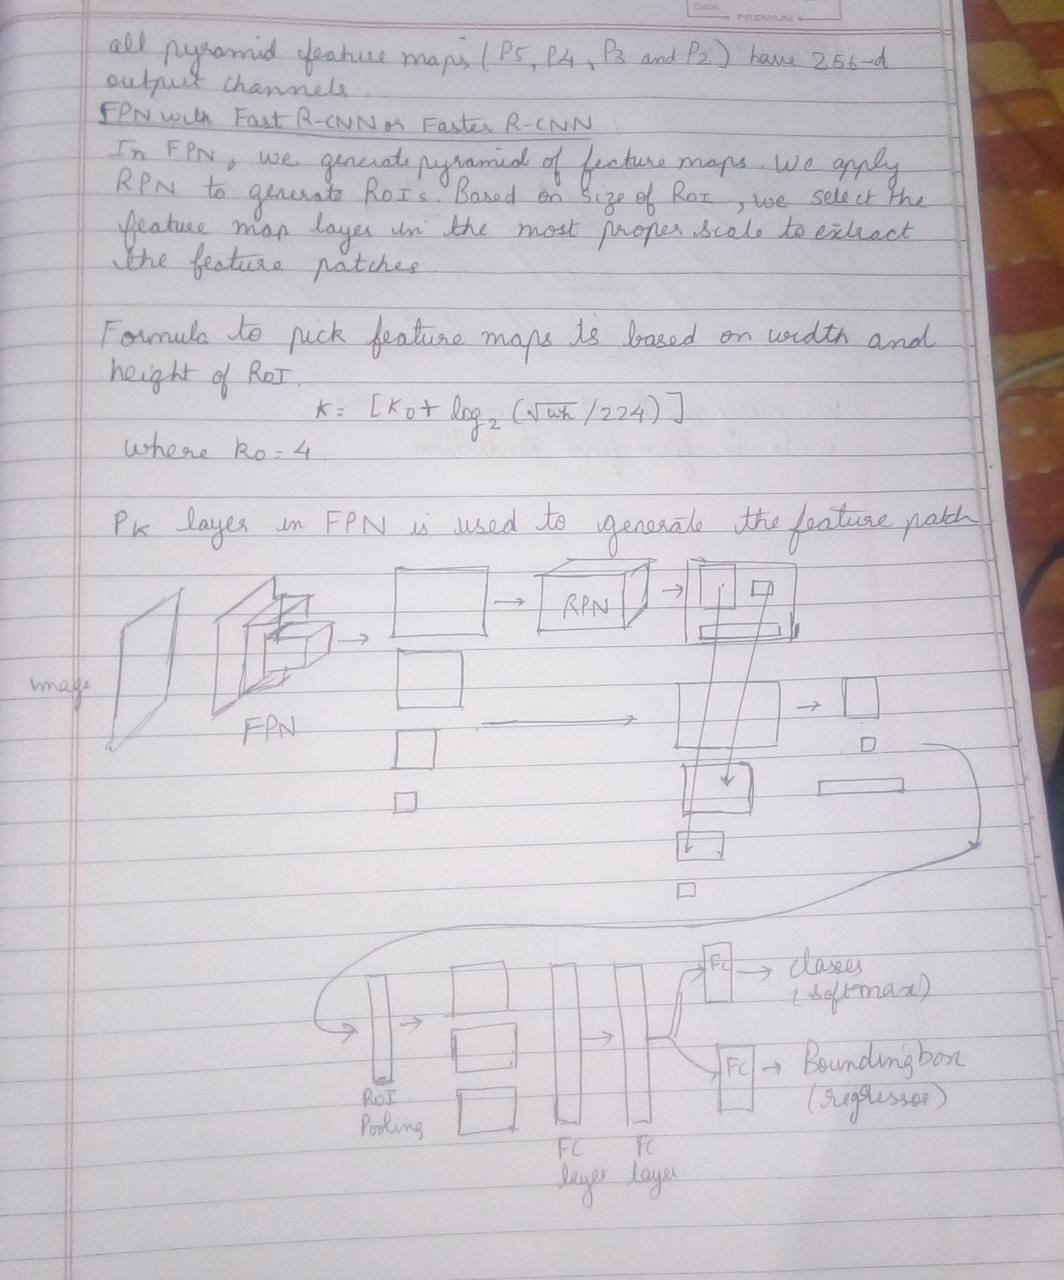 Date:
PREMIUM
all pyramid feature maps (P5, P4, P3 and P2) have 256-d
output channels
FPN with Fast R-CNN or Faster R-CNN
In FPN, we generate pyramid of feature maps. We apply
RPN to generate RoIs. Based on size of RoI, we select the
feature map layer in the most proper scale to extract
the feature patches
Formula to pick feature maps is based on width and
height of RoI.
k = [k0 + log2 (√wh /224)]
where k0 = 4
PK layer in FPN is used to generate the feature patch
RPN
image
FPN
FC → classes
(softmax)
FC → Bounding box
(regressor)
RoI
Pooling
FC
layer
FC
layer